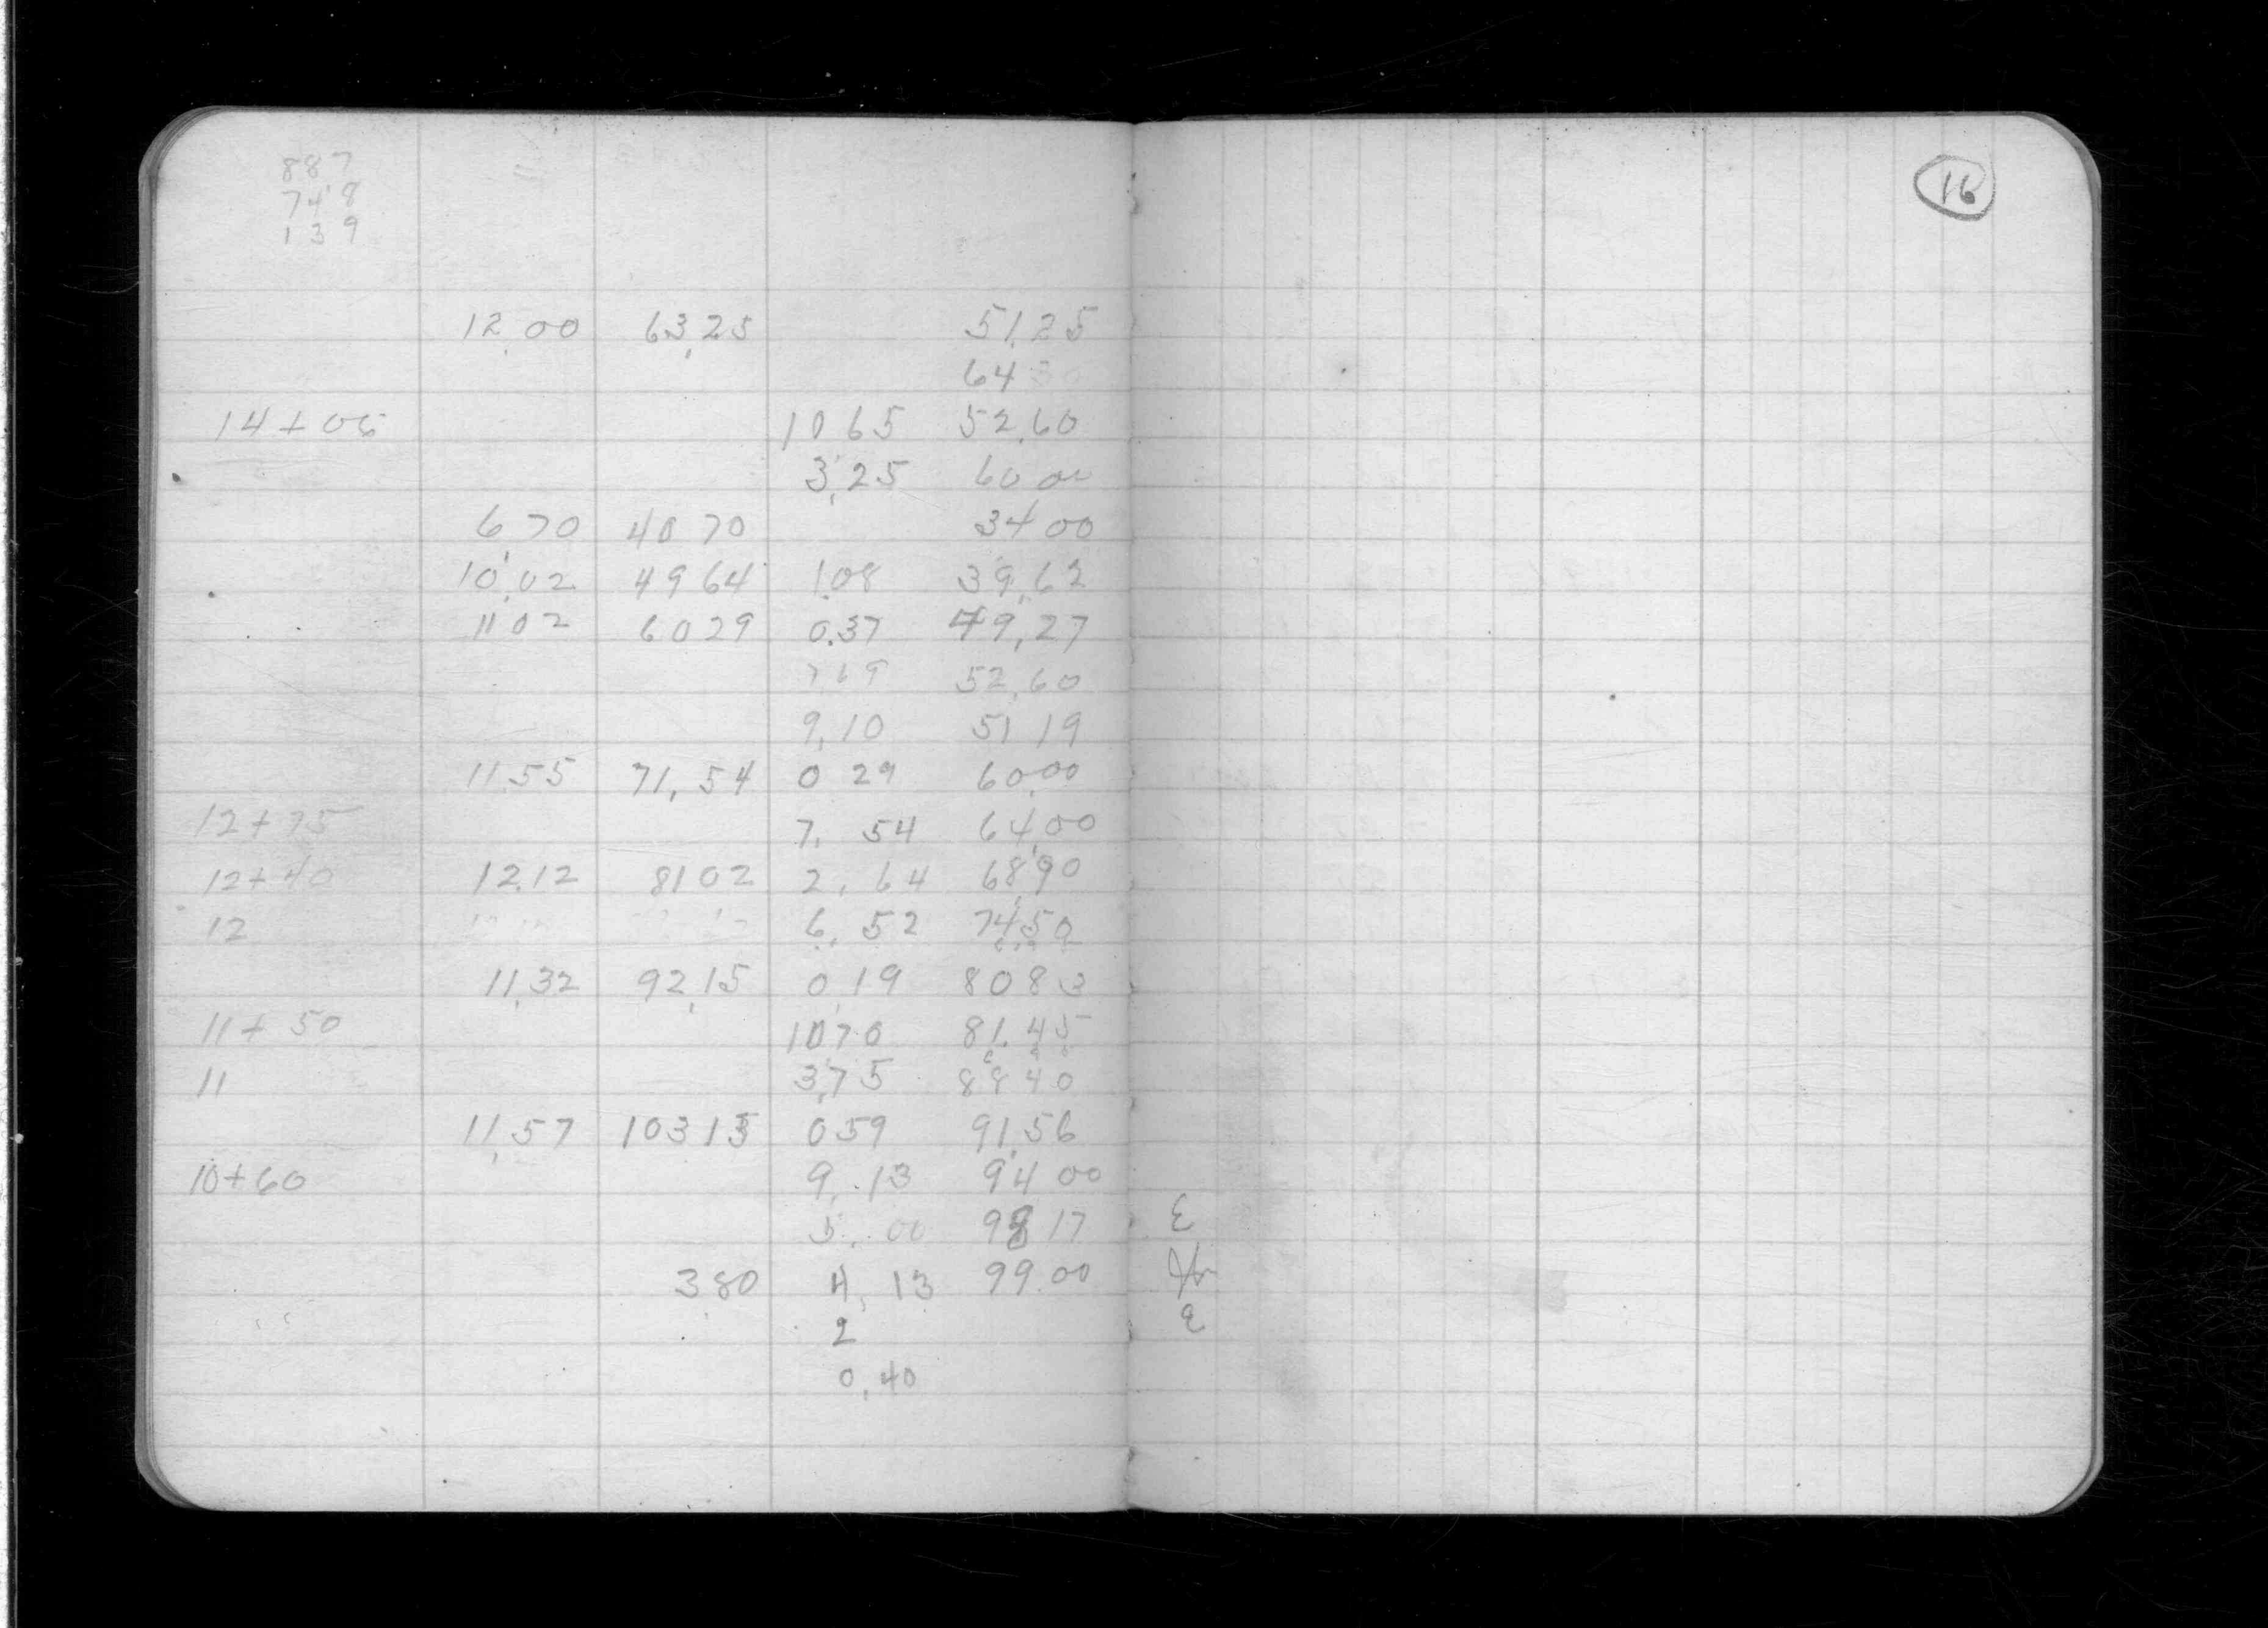 887
748
139
16
12.00 63.25 51.25
64
14+06 10 65 52.60
3.25 60 00
6 70 40 70 34 00
10.02 49 64 1.08 39.62
11 02 60 29 0.37 49.27
7 69 52.60
9.10 51 19
11.55 71.54 0 29 60.00
12+75 7. 54 64.00
12+40 12.12 81 02 2. 64 68.90
12 6. 52 74.50
11.32 92.15 0.19 80 83
11+50 10.70 81.45
11 3.75 88 40
11.57 103 13 0 59 91.56
10+60 9. 13 94 00
5. 00 98 17 E
3 80 4. 13 99.00
2
0.40